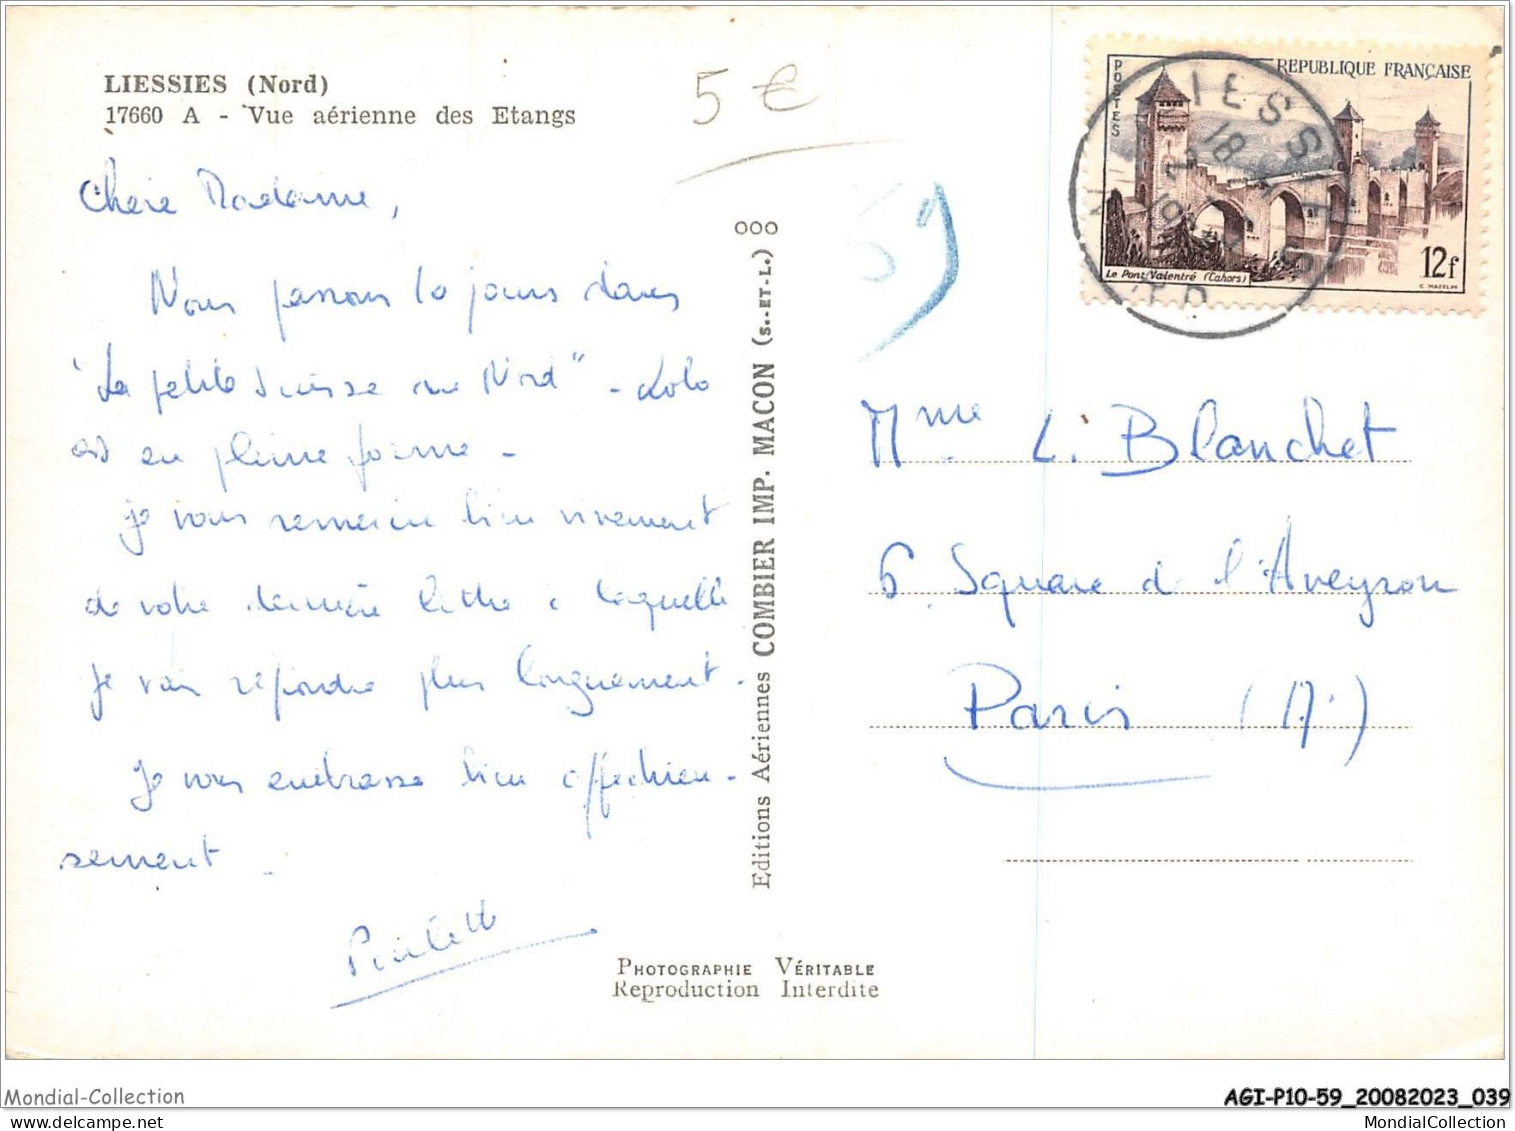 LIESSIES (Nord)
17660 A - Vue aérienne des Etangs
5 €
59
Chère Madame,
Nous passons 10 jours dans
"La petite Suisse du Nord" - Lolo
est en pleine forme -
je vous remercie bien vivement
de votre dernière lettre à laquelle
je vais répondre plus longuement -
Je vous embrasse bien affectueu-
sement -
ooo
Editions Aériennes COMBIER IMP. MACON (S.-ET-L.)
PHOTOGRAPHIE VÉRITABLE
Reproduction Interdite
POSTES
REPUBLIQUE FRANÇAISE
Le Pont Valentré (Cahors)
12f
C. MAZELIN
LIESSIES
18
NORD
Mme L. Blanchet
6 Square de l'Aveyron
Paris
Mondial-Collection
AGI-P10-59_20082023_039
Copyright
MondialCollection